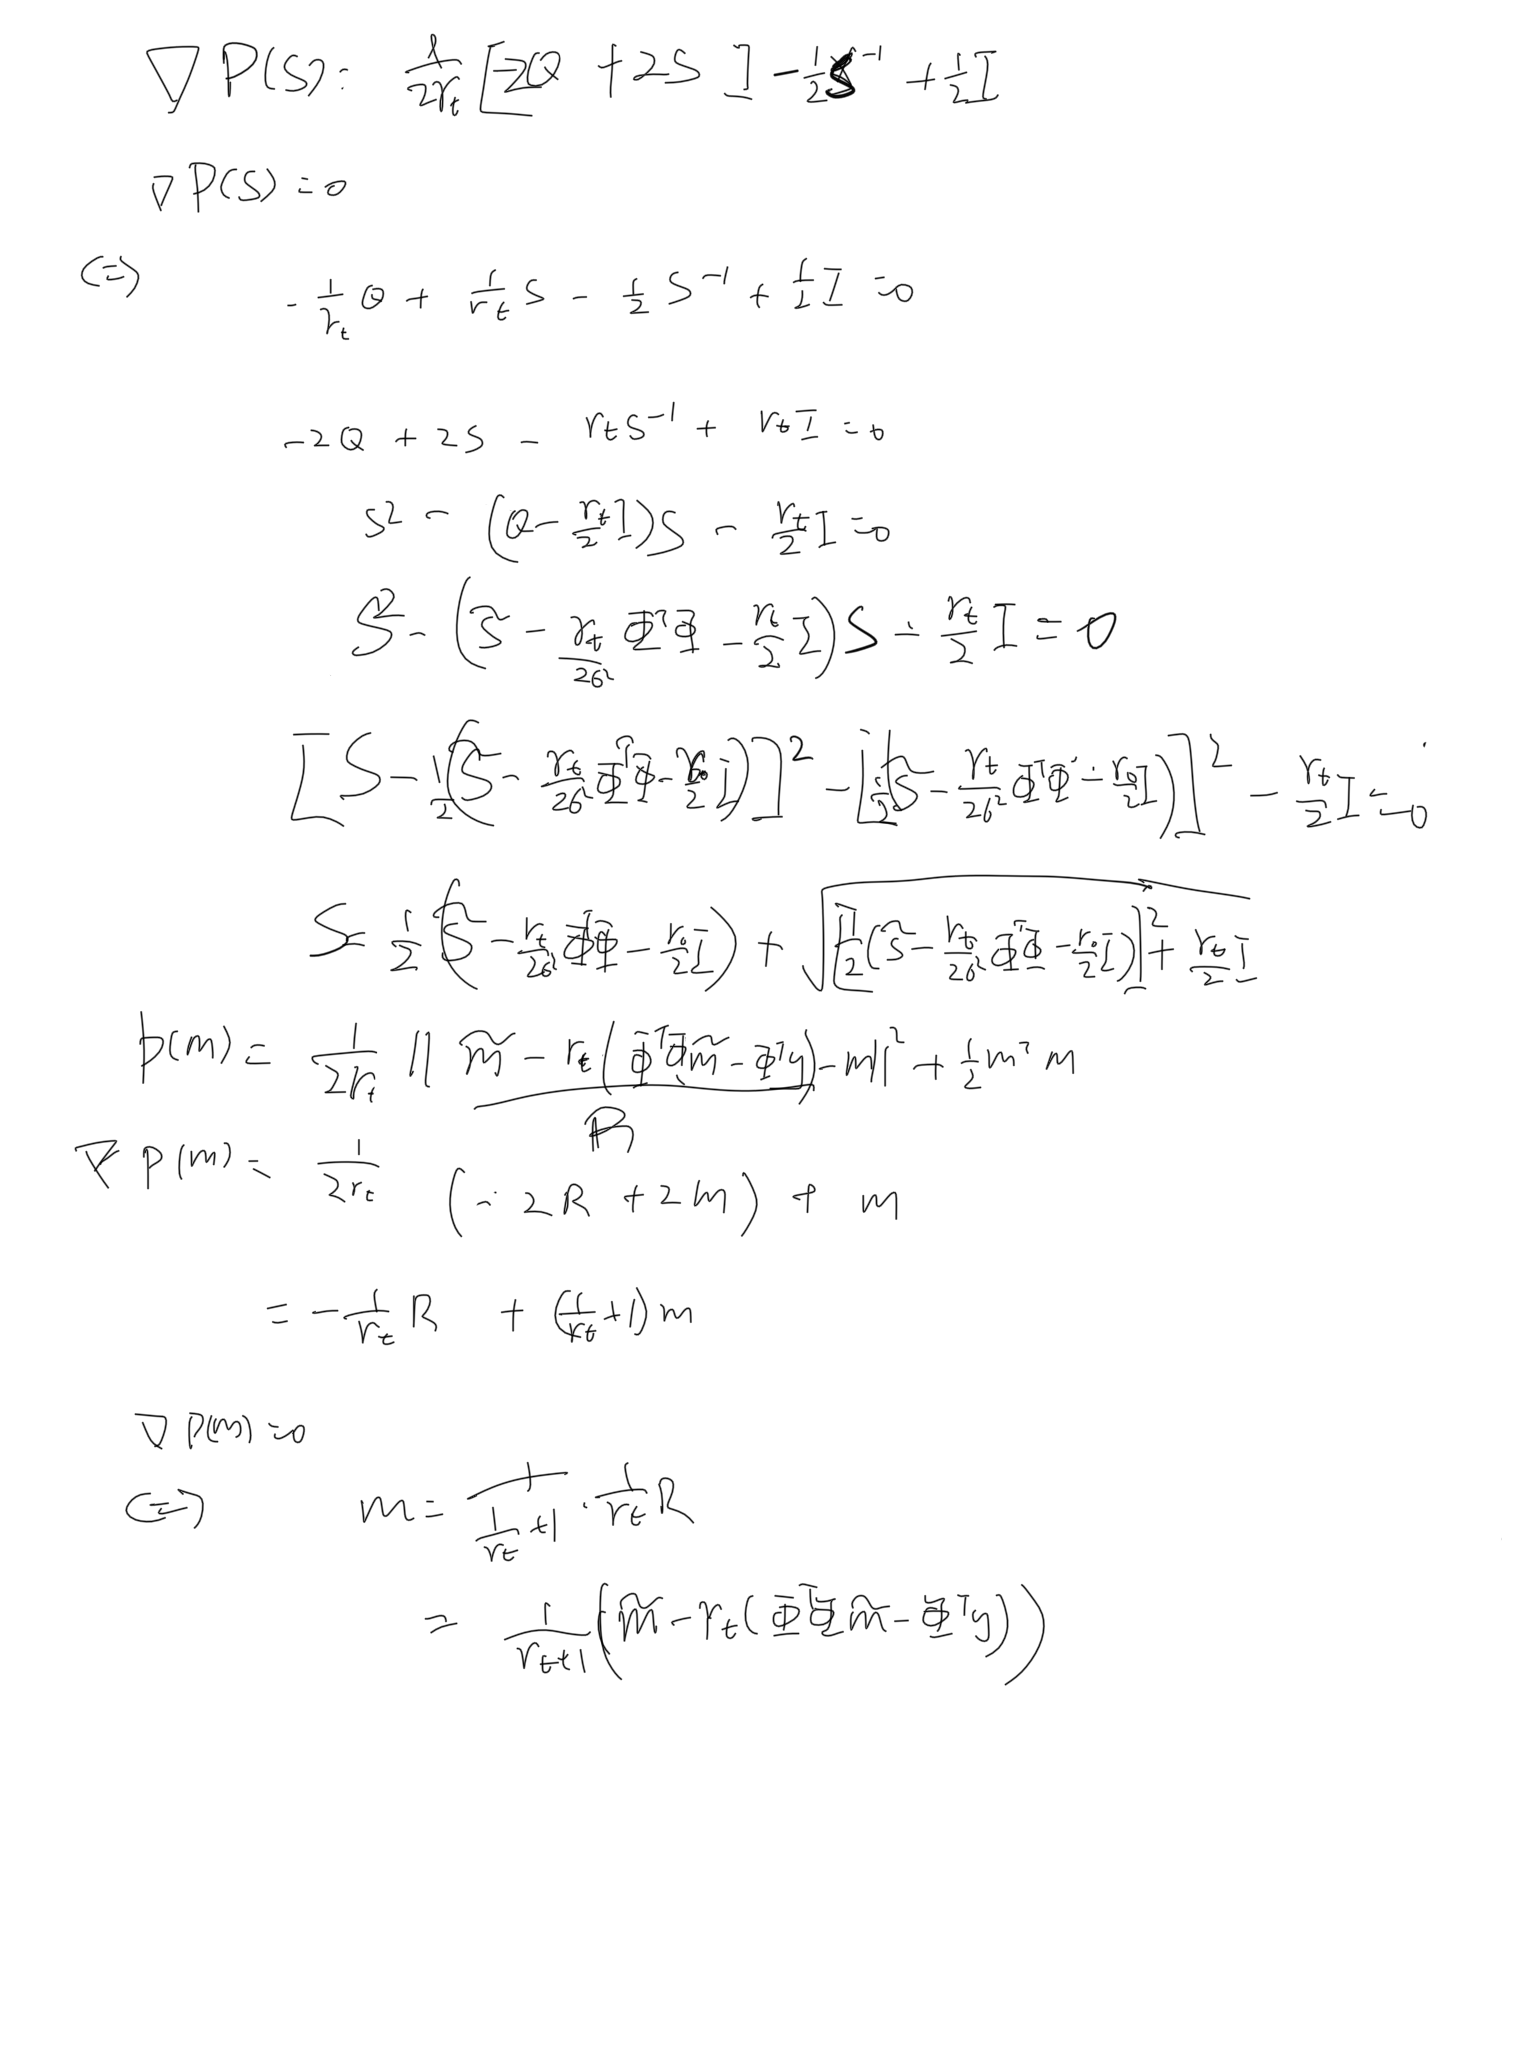 ∇ P(S): 1/(2r_t) [-2Q + 2S] - 1/2 S^-1 + 1/2 I
∇ P(S) = 0
(=) -1/r_t Q + 1/r_t S - 1/2 S^-1 + 1/2 I = 0
-2Q + 2S - r_t S^-1 + r_t I = 0
S^2 - (Q - r_t/2 I) S - r_t/2 I = 0
S^2 - (S̃ - r_t/(2σ^2) Φ^TΦ - r_t/2 I) S - r_t/2 I = 0
[S - 1/2 (S̃ - r_t/(2σ^2) Φ^TΦ - r_t/2 I)]^2 - [1/2 (S̃ - r_t/(2σ^2) Φ^TΦ - r_t/2 I)]^2 - r_t/2 I = 0
S = 1/2 (S̃ - r_t/(2σ^2) Φ^TΦ - r_t/2 I) + √([1/2 (S̃ - r_t/(2σ^2) Φ^TΦ - r_t/2 I)]^2 + r_t/2 I)
p(m) = 1/(2r_t) || m̃ - r_t (Φ^TΦm̃ - Φ^Ty) - m ||^2 + 1/2 m^T m
R
∇ P(m) = 1/(2r_t) (-2R + 2m) + m
= -1/r_t R + (1/r_t + 1) m
∇ P(m) = 0
(=) m = 1/(1/r_t + 1) · 1/r_t R
= 1/(r_t+1) (m̃ - r_t (Φ^TΦm̃ - Φ^Ty))